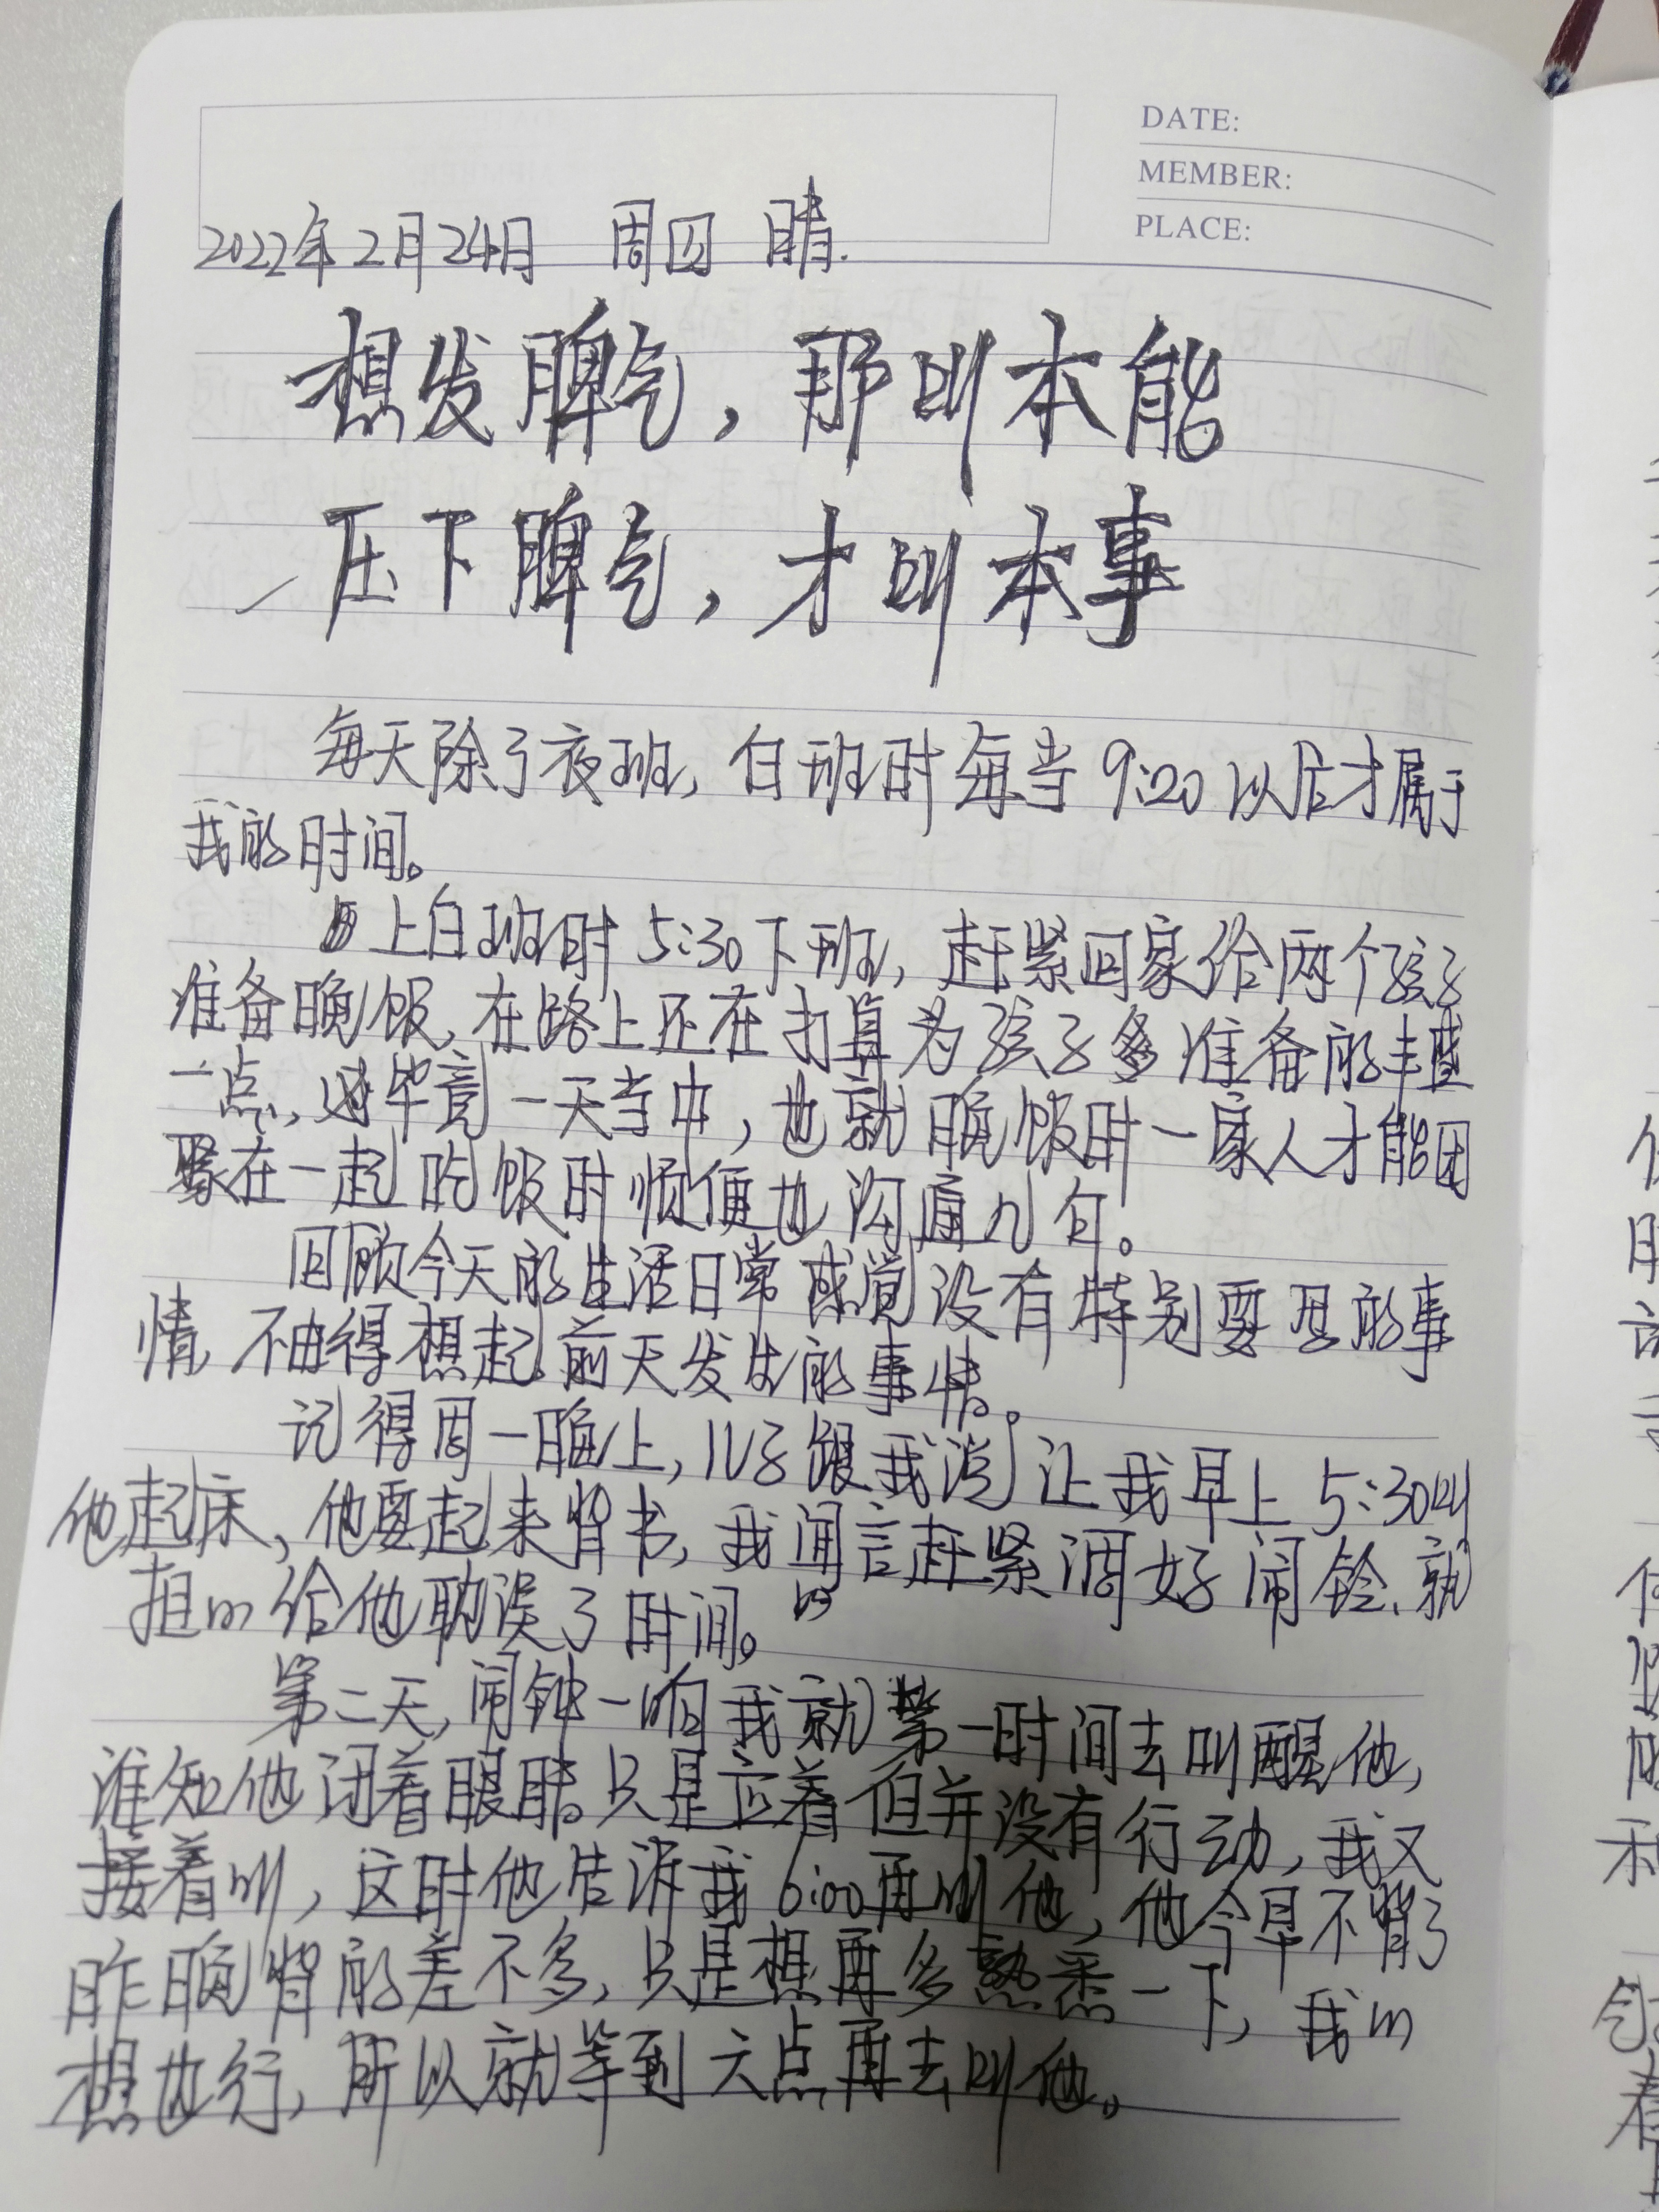 DATE:
MEMBER:
PLACE:
2022年2月24日 周四 晴.
想发脾气，那叫本能
压下脾气，才叫本事
每天除了夜班，白班时每当9:20以后才属于
我的时间。
上白班时5:30下班，赶紧回家给两个孩子
准备晚饭，在路上还在打算为孩子多准备的丰盛
一点，毕竟一天当中，也就晚饭时一家人才能团
聚在一起吃饭时顺便也沟通几句。
回顾今天的生活日常感觉没有特别要思的事
情，不由得想起前天发生的事情。
记得周一晚上，儿子跟我说让我早上5:30叫
他起床，他要起来背书，我闻言赶紧调好闹铃，就
担心给他耽误了时间。
第二天，闹钟一响我就第一时间去叫醒他，
谁知他闭着眼睛。只是应着但并没有行动，我又
接着叫，这时他告诉我6:00再叫他，他今早不背了
昨晚背的差不多，只是想再多熟悉一下，我心
想也行，所以就等到六点再去叫他。